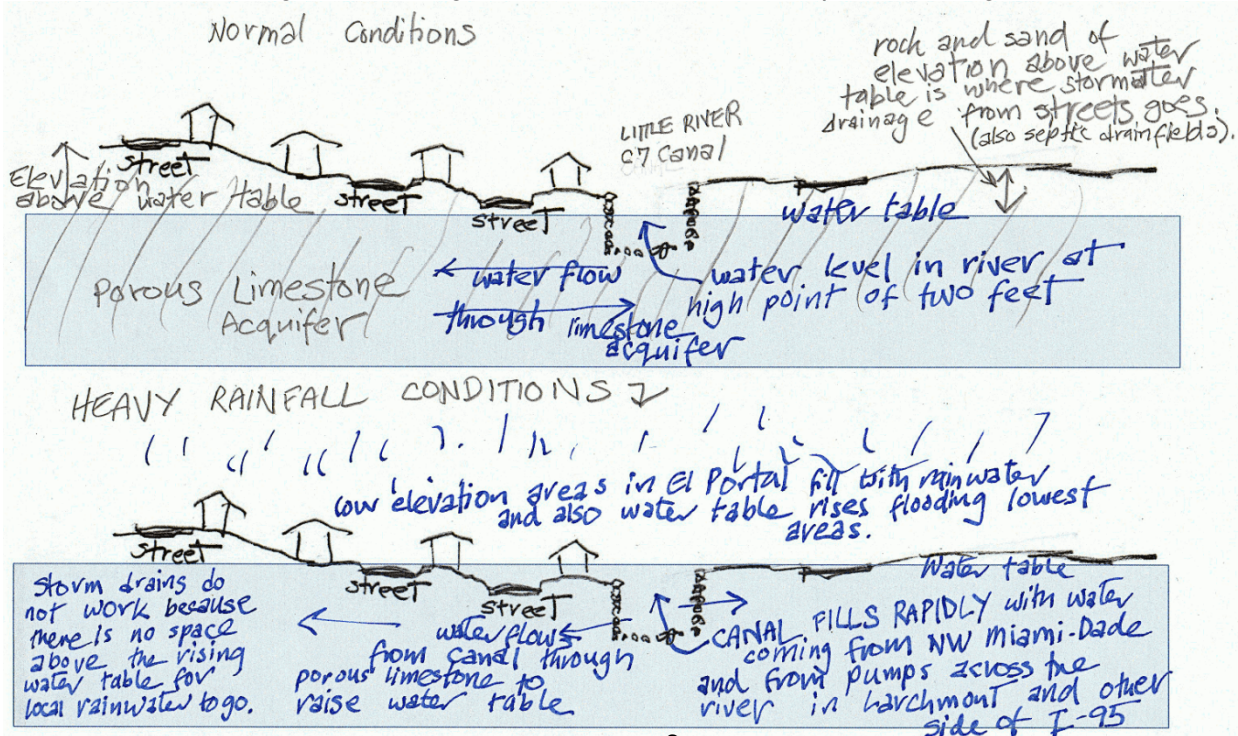 Normal Conditions
rock and sand of
elevation above water
table is where stormwater
drainage from streets goes.
(also septic drainfields).
LITTLE RIVER
C7 Canal
street
Elevation
above water table
street
street
water table
Porous Limestone
Acquifer
water flow
through limestone
acquifer
water level in river at
high point of two feet
HEAVY RAINFALL CONDITIONS
low elevation areas in El Portal fill with rainwater
and also water table rises flooding lowest
areas.
street
street
street
Storm drains do
not work because
there is no space
above the rising
water table for
local rainwater to go.
water flows
from canal through
porous limestone to
raise water table
Water table
CANAL FILLS RAPIDLY with water
coming from NW Miami-Dade
and from pumps across the
river in Larchmont and other
side of I-95